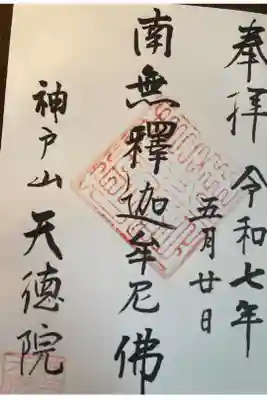 奉拝 令和七年
五月廿日
南無釋迦牟尼佛
神戸山 天德院